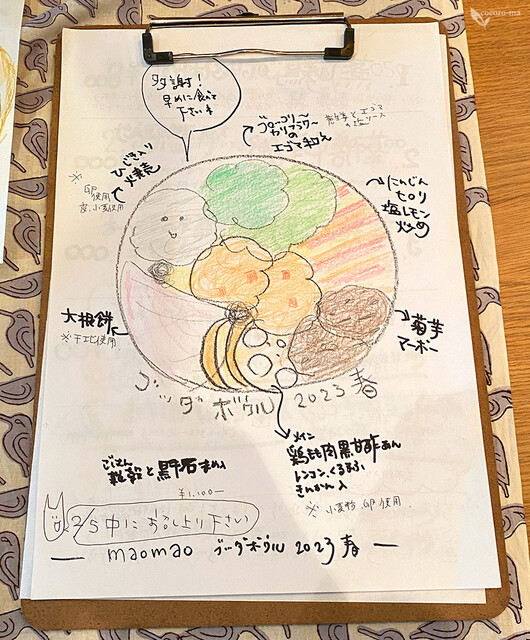 cocoro-ma
多謝!
早めに食べて
下さいませ
ブロッコリー
カリフラワー
の
エゴマ和え
ひじき入り
火焼売
※
卵
使用
麦、小麦使用
にんじん
セロリ
塩レモン
炒め
大根餅
※干エビ使用
菊芋
マーボー
ブッダボウル 2023 春
メイン
鶏もも肉黒甘酢あん
レンコン、くるみ、
きんかん入
※小麦粉、卵使用
ごはん
雑穀と黒千石まめ
¥1,100-
2/5 中に おめし上り下さい
maomao ブッダボウル 2023 春